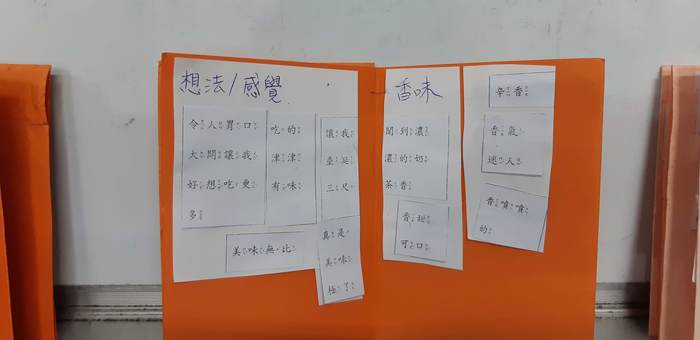 想法/感覺
令人胃口
大開讓我
好想吃更
多
吃的
津津
有味
讓我
垂涎
三尺
美味無比
真是
美味
極了
香味
聞到濃
濃的奶
茶香
香甜
可口
辛香
香氣
迷人
香噴噴
的